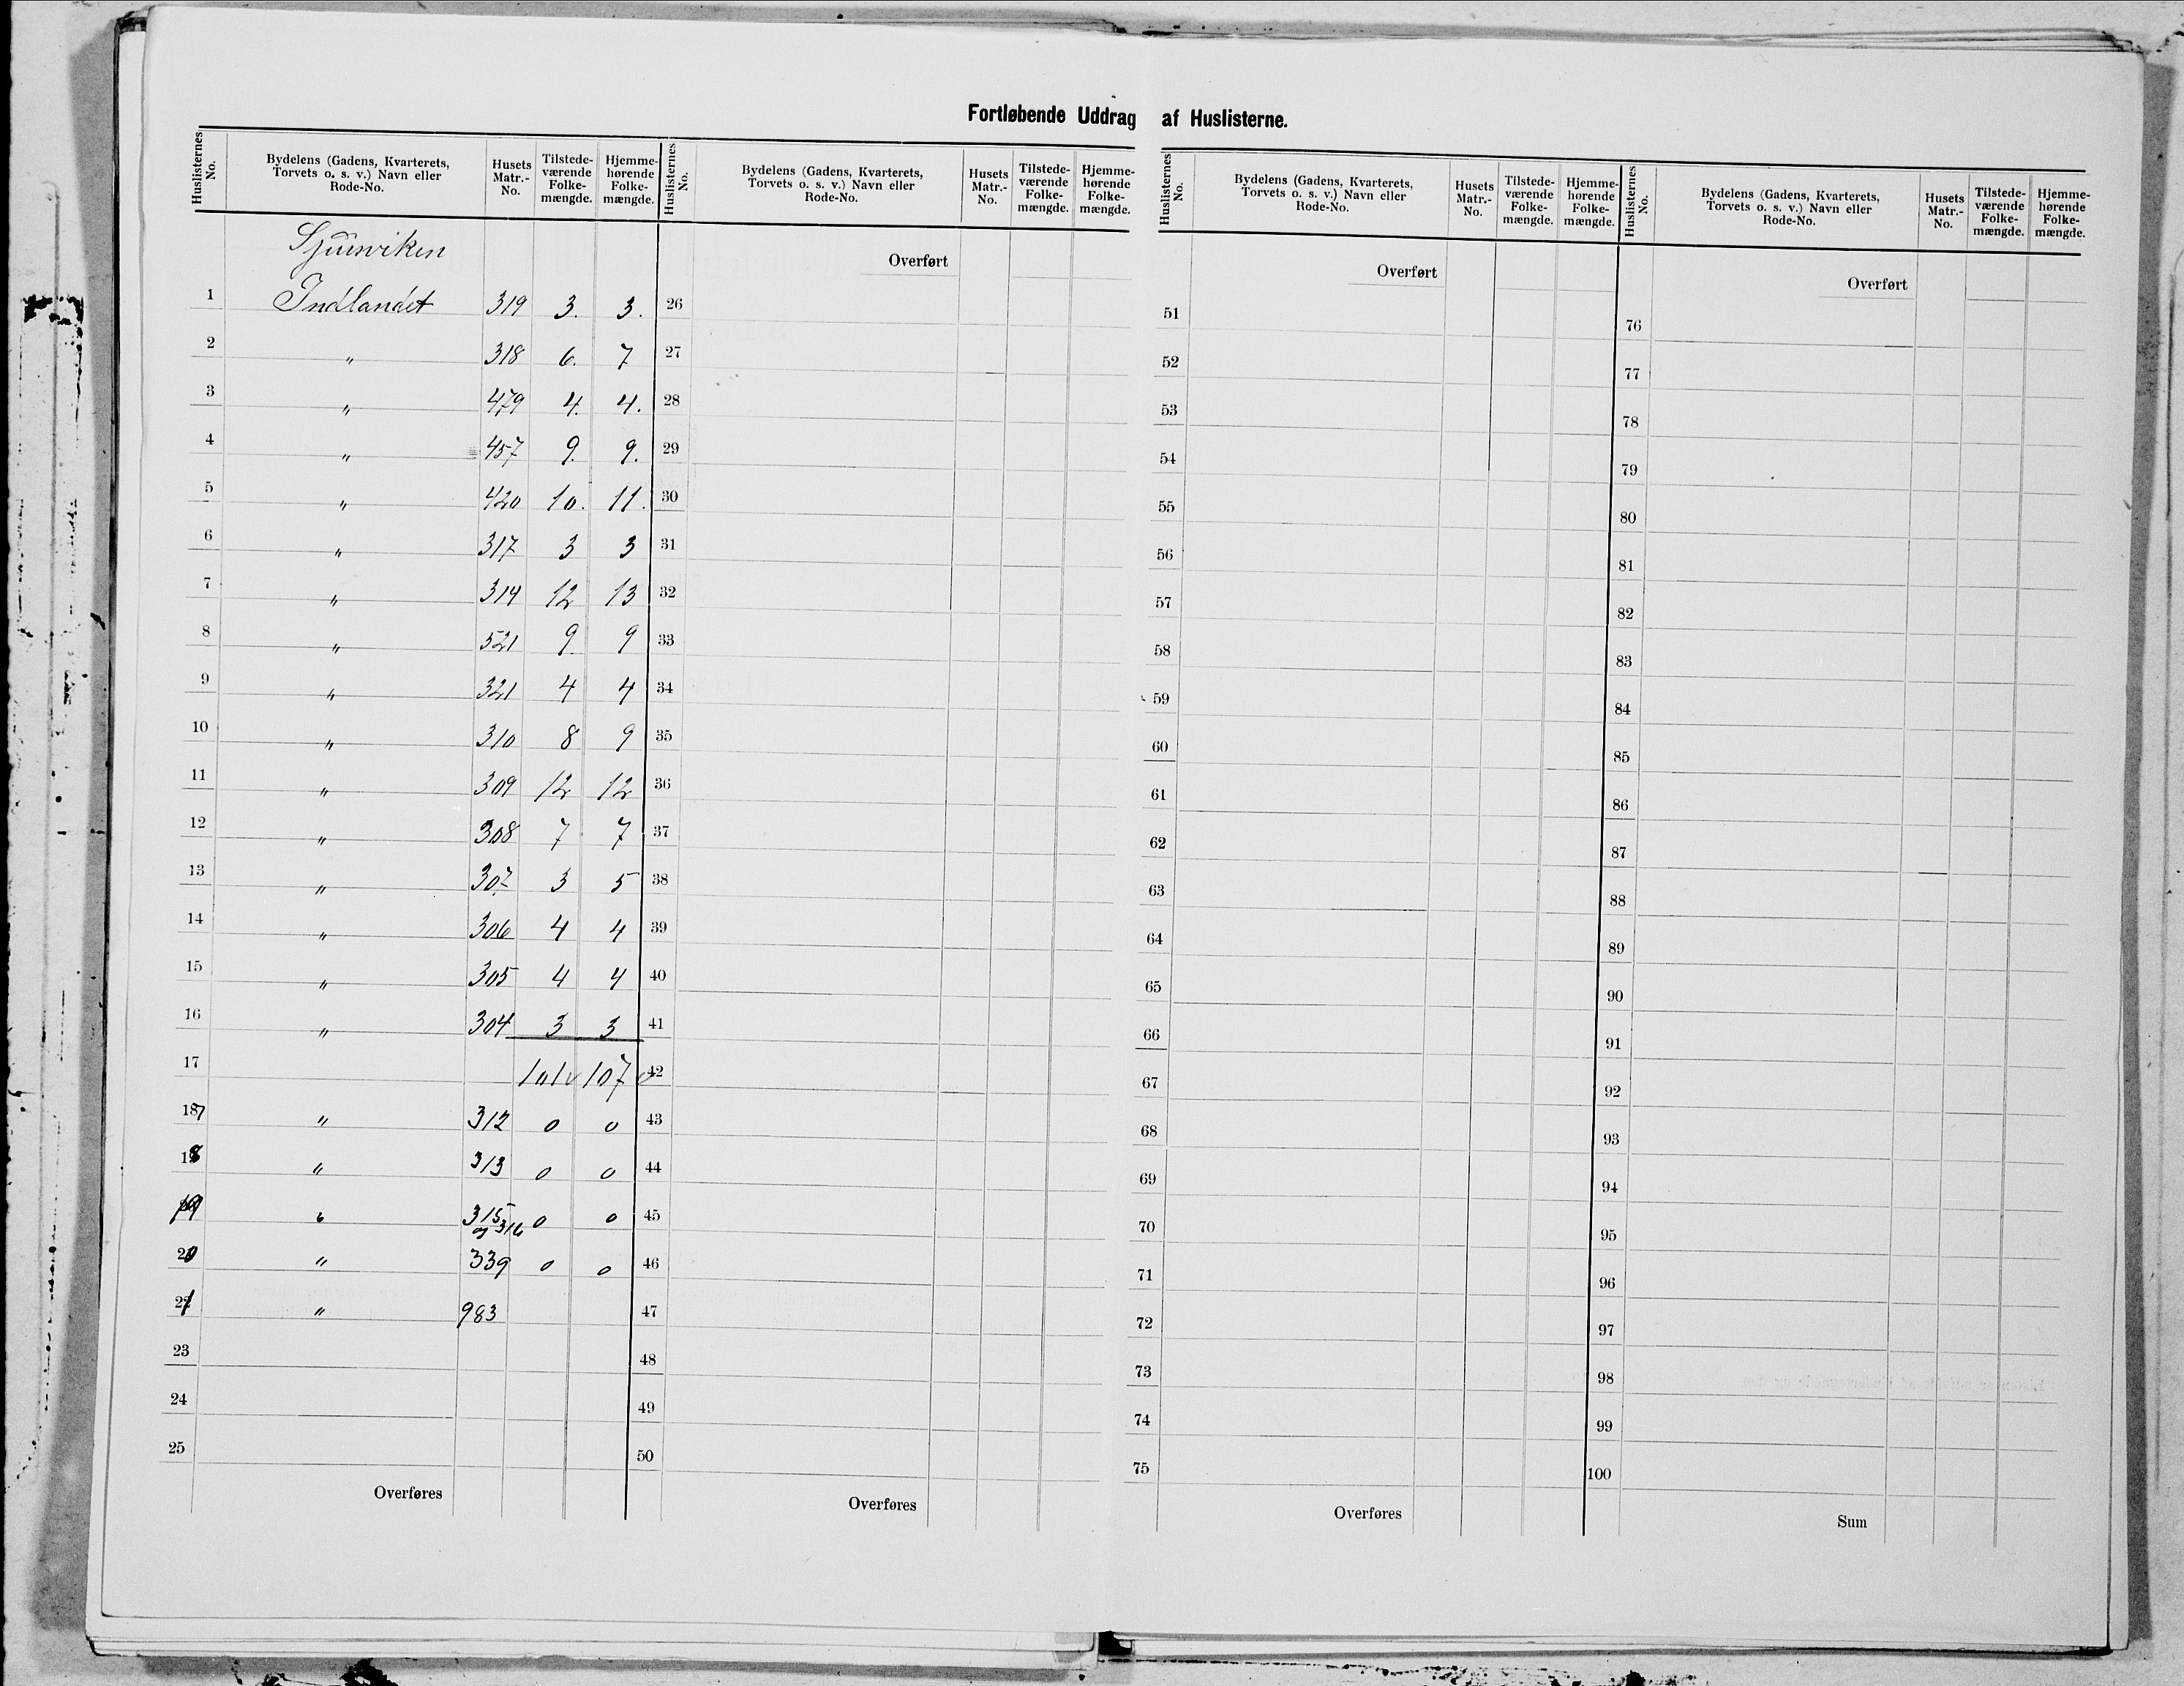 Fortløbende Uddrag af Huslisterne.
Huslisternes No. Bydelens (Gadens, Kvarterets, Torvets o. s. v.) Navn eller Rode-No. Husets Matr.-No. Tilstede-værende Folke-mængde. Hjemme-hørende Folke-mængde.
Indlandet
1 319 3. 3.
2 " 318 6. 7
3 " 479 4. 4.
4 " 457 9. 9.
5 " 420 10. 11.
6 " 317 3 3
7 " 314 12 13
8 " 521 9 9
9 " 321 4 4
10 " 310 8 9
11 " 309 12 12
12 " 308 7 7
13 " 307 3 5
14 " 306 4 4
15 " 305 4 4
16 " 304 3 3
17 101 107
187 " 312 0 0
18 " 313 0 0
19 " 315 og 316 0 0
20 " 339 0 0
21 " 983
23
24
25
Overføres
Huslisternes No. Bydelens (Gadens, Kvarterets, Torvets o. s. v.) Navn eller Rode-No. Husets Matr.-No. Tilstede-værende Folke-mængde. Hjemme-hørende Folke-mængde.
Overført
26
27
28
29
30
31
32
33
34
35
36
37
38
39
40
41
42
43
44
45
46
47
48
49
50
Overføres
Huslisternes No. Bydelens (Gadens, Kvarterets, Torvets o. s. v.) Navn eller Rode-No. Husets Matr.-No. Tilstede-værende Folke-mængde. Hjemme-hørende Folke-mængde.
Overført
51
52
53
54
55
56
57
58
59
60
61
62
63
64
65
66
67
68
69
70
71
72
73
74
75
Overføres
Huslisternes No. Bydelens (Gadens, Kvarterets, Torvets o. s. v.) Navn eller Rode-No. Husets Matr.-No. Tilstede-værende Folke-mængde. Hjemme-hørende Folke-mængde.
Overført
76
77
78
79
80
81
82
83
84
85
86
87
88
89
90
91
92
93
94
95
96
97
98
99
100
Sum